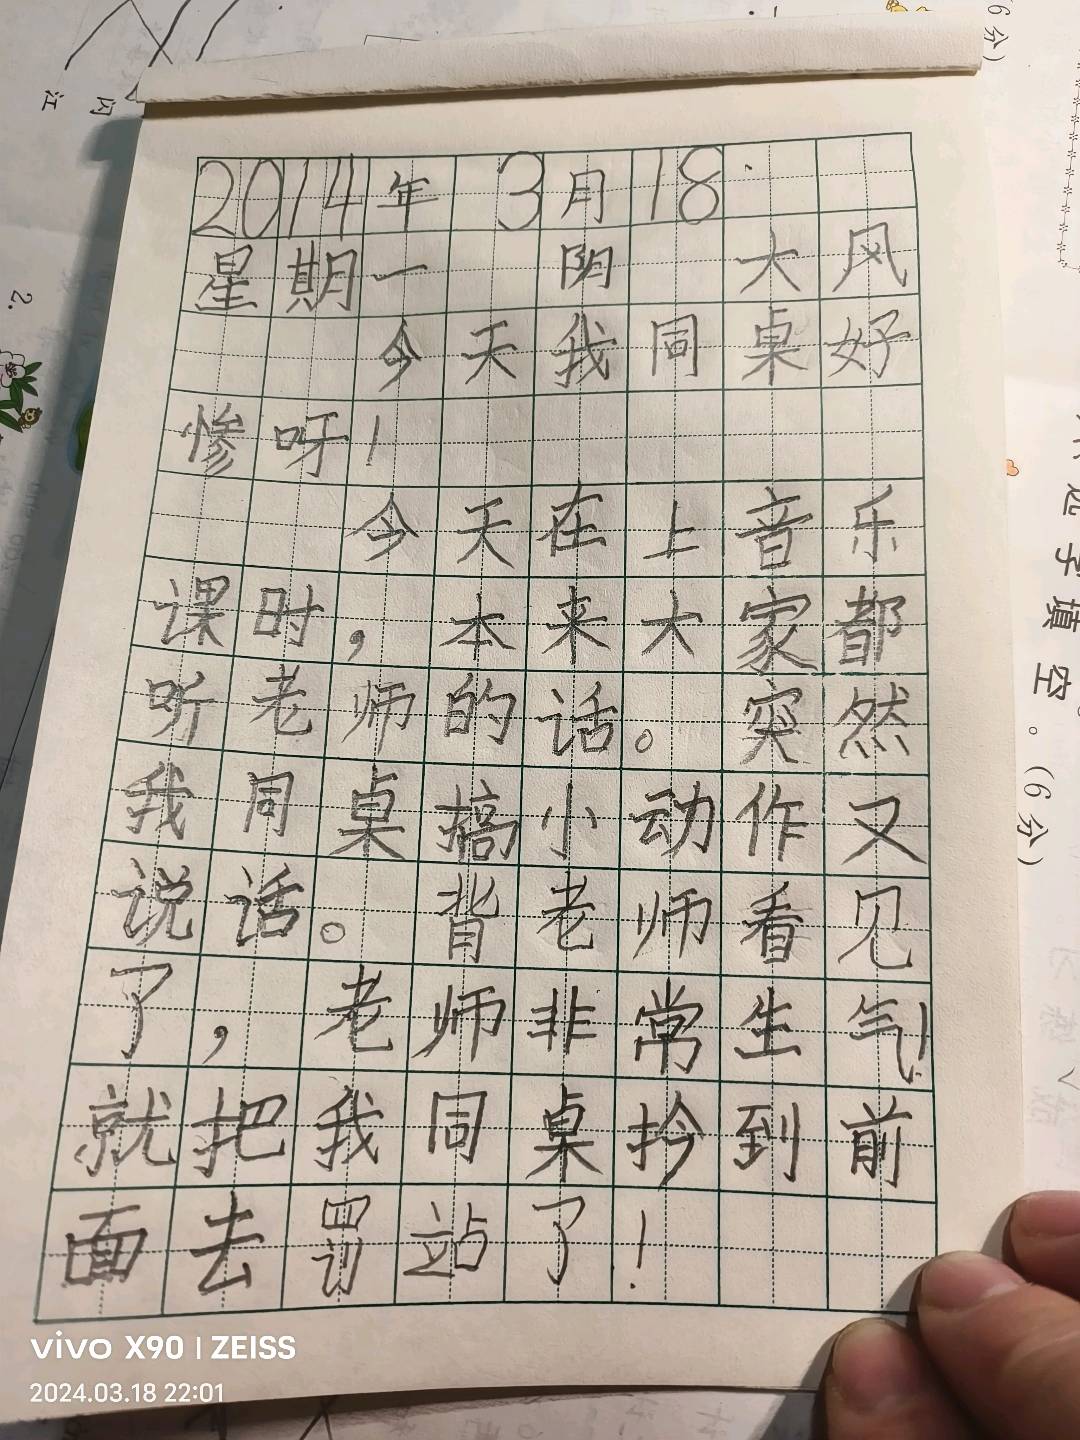 2014年 3月18.
星期一 阴 大风
今天我同桌好
惨呀!
今天在上音乐
课时,本来大家都
听老师的话。突然
我同桌搞小动作又
说话。背老师看见
了,老师非常生气!
就把我同桌扲到前
面去罚站了!
vivo X90 | ZEISS
2024.03.18 22:01
(6分)
江
闪
2.
字填空。(6分)